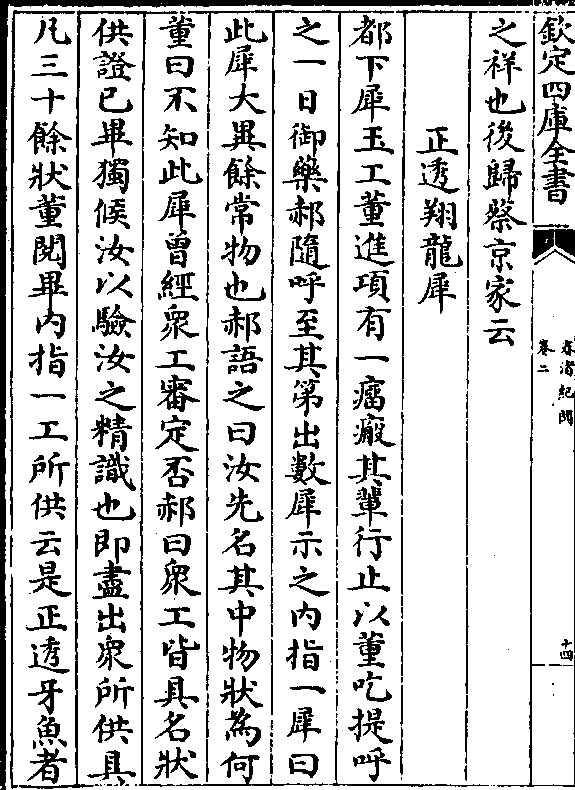 欽定四庫全書
春渚紀聞
卷二
十四
之祥也後歸蔡京家云
正透翔龍犀
都下犀玉工董進項有一瘤癜其輩行止以董吃提呼
之一日御藥郝隨呼至其第出數犀示之内指一犀曰
此犀大異餘常物也郝語之曰汝先名其中物狀為何
董曰不知此犀曾經衆工審定否郝曰衆工皆具名狀
供證已畢獨候汝以驗汝之精識也即盡出衆所供具
凡三十餘狀董閲畢内指一工所供云是正透牙魚者